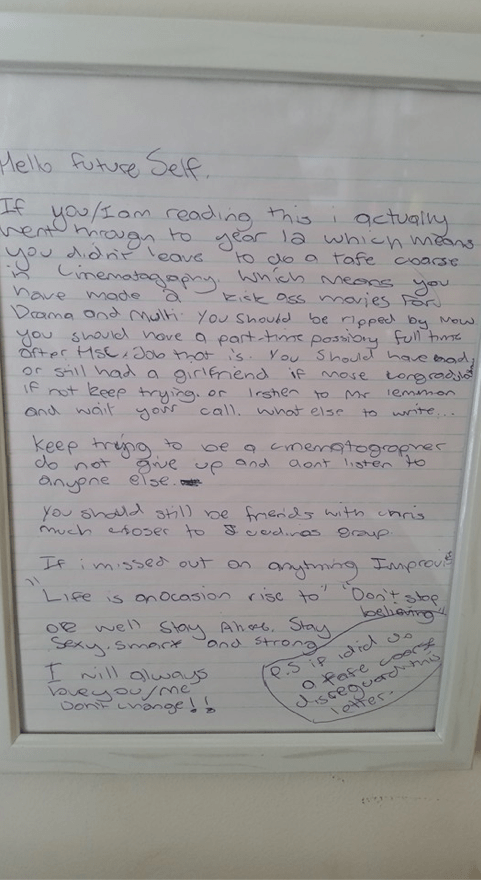 Hello future Self.
If you/I am reading this i actually
went through to year 12 which means
you didn't leave to do a tafe coarse
in Cinematography. Which means you
have made a kick ass movies for
Drama and Multi. You should be ripped by now
you should have a part-time possibly full time
after HSC. Job that is. You should have had,
or still had a girlfriend if mose
if not keep trying, or listen to Mr lemmon
and wait your call. What else to write...
keep trying to be a cinematographer
do not give up and dont listen to
anyone else.
You should still be friends with chris
much closer to group.
If i missed out on anything Improvise
"Life is an ocasion rise to" "Don't stop
believing"
or well Stay Stay
Sexy, smart and strong
I will always
love you/me
Don't change!!
P.S if i did do
a tafe coarse
disseguard this
letter.